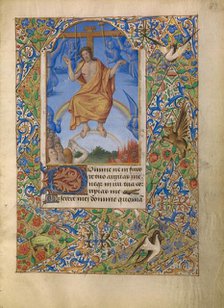 Domine ne in furo
re tuo arguas me
neqȝ in ira tua cor
ripias me
iserere mei domine quoniā